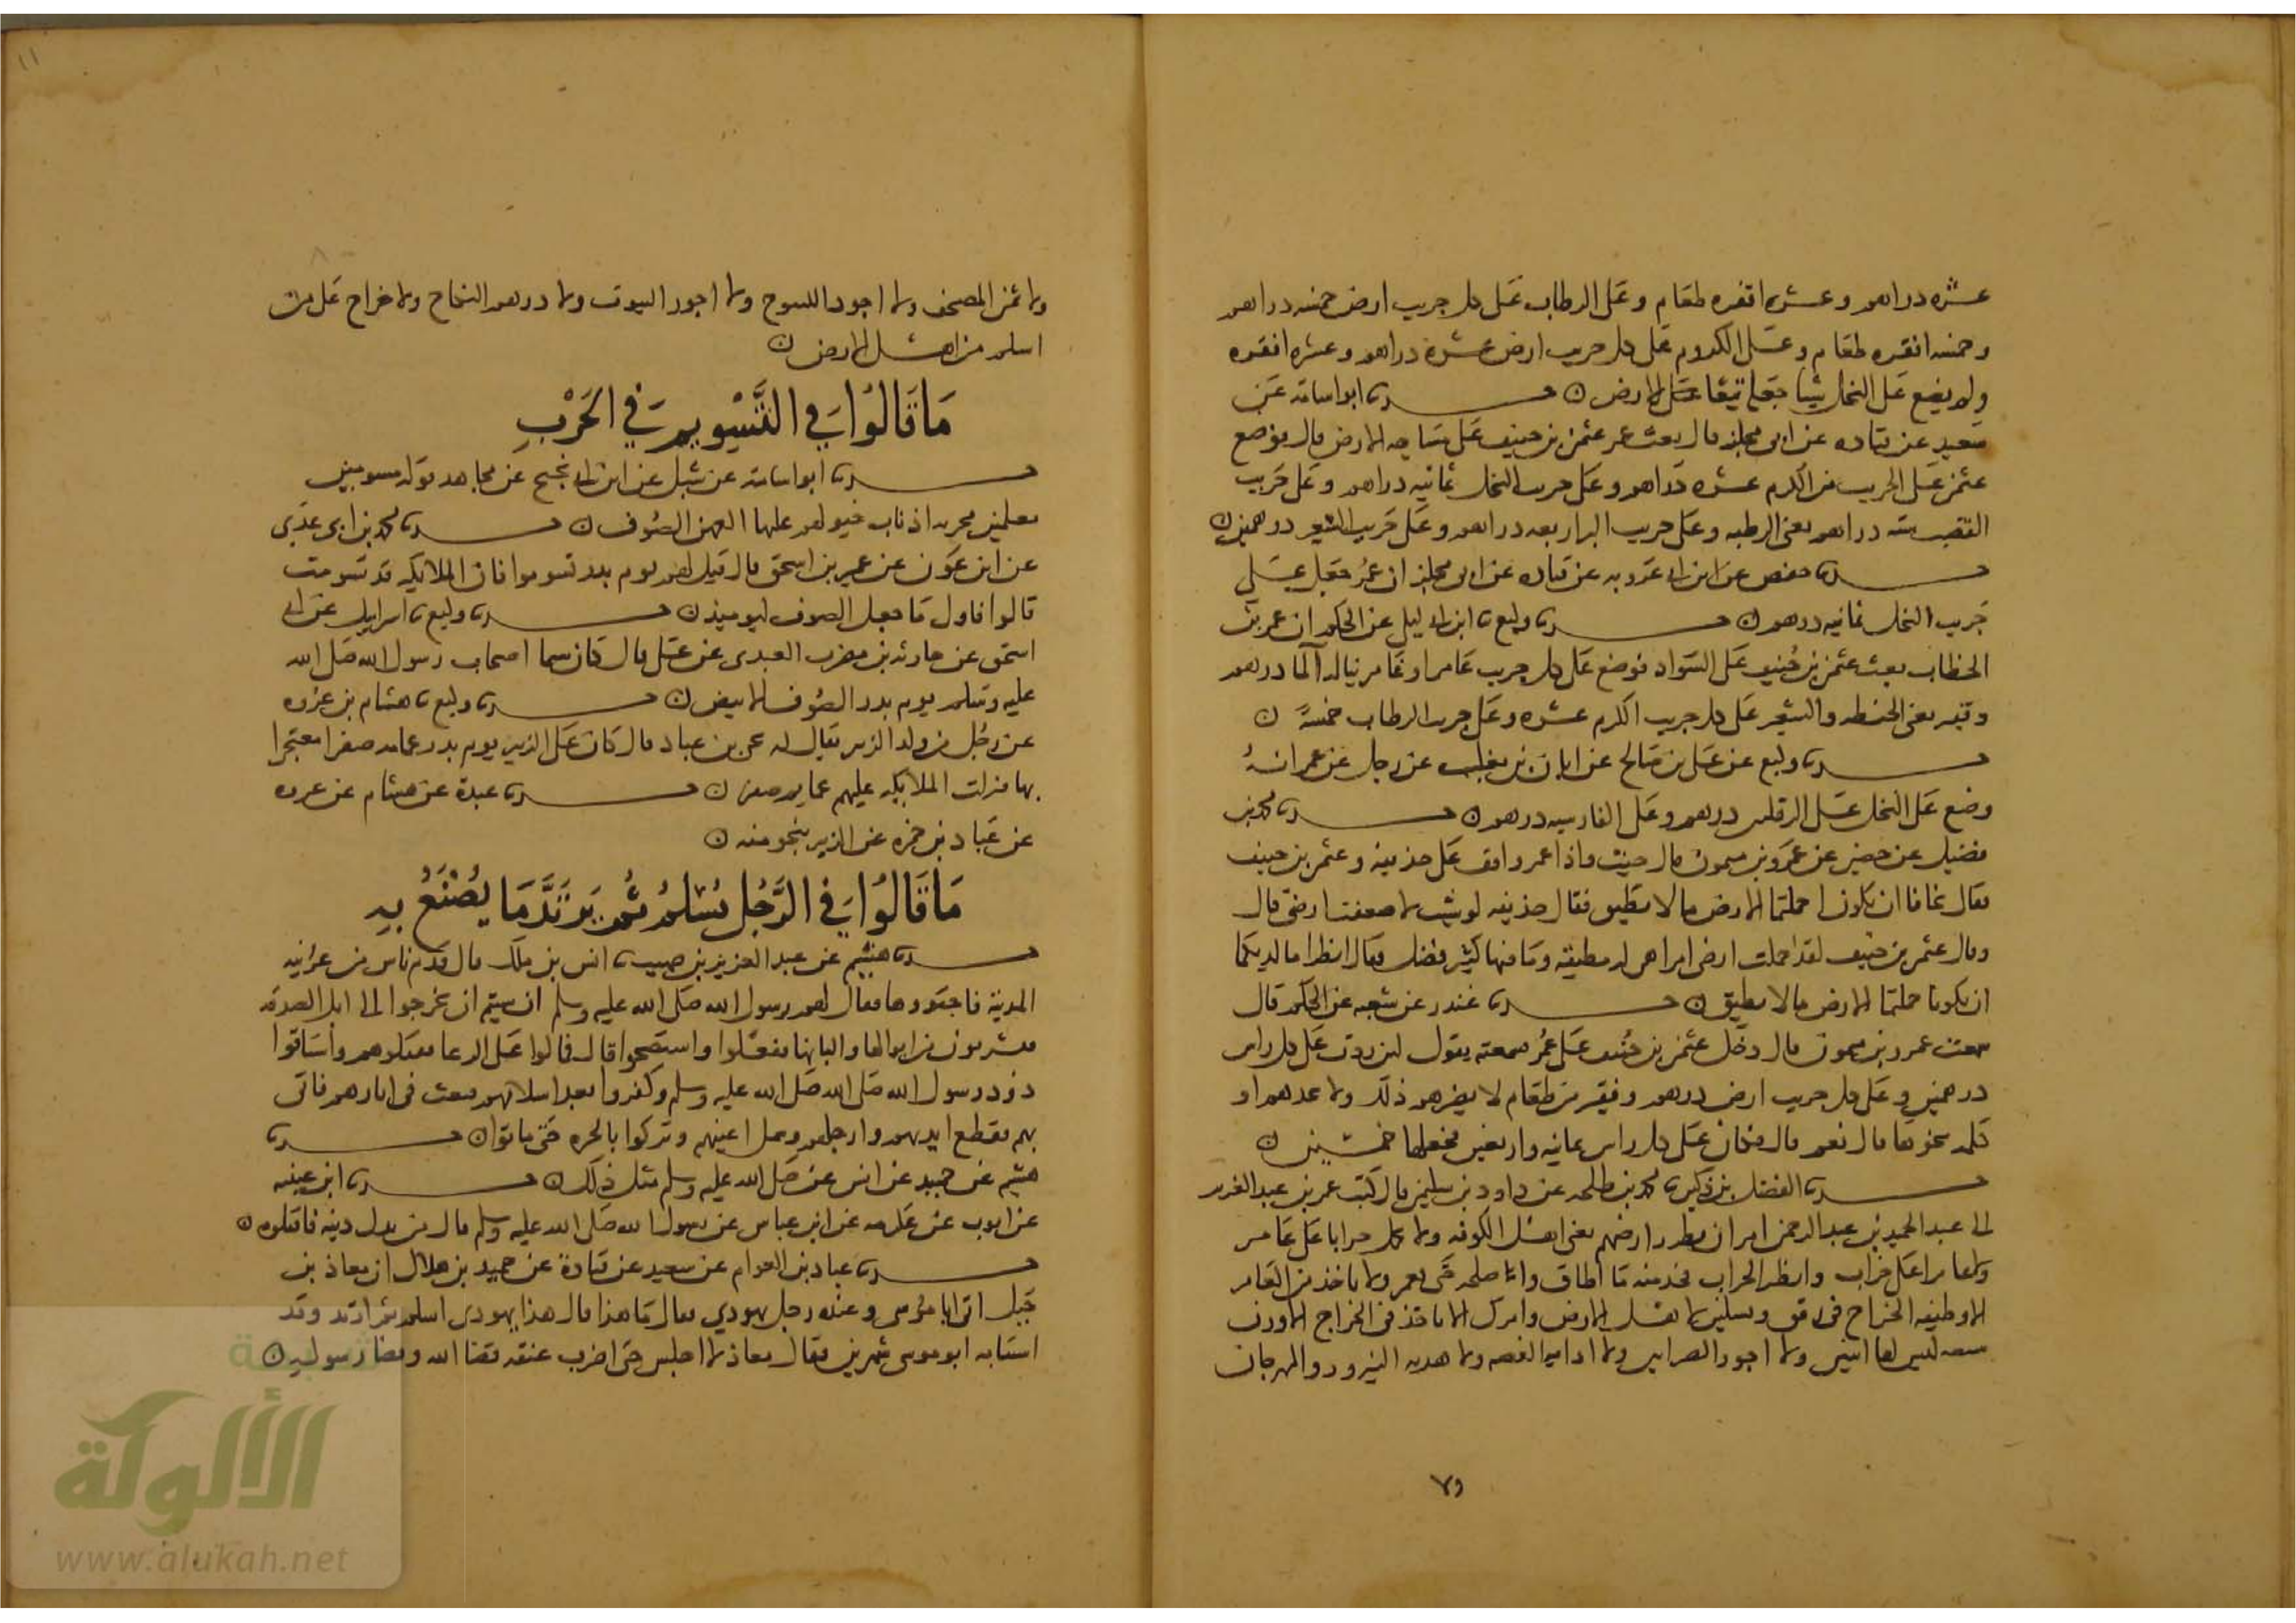 عشره دراهم وعشره اقفزه طعام وعلى الرطاب على كل جريب ارض خمسه دراهم
وخمسه اقفزه طعام وعلى الكروم على كل جريب ارض عشره دراهم وعشره اقفزه
ولم يضع على النخل شيا جعله تبعا للارض ابو اسامه عن
سعيد عن قتاده عن ابى مجلز قال بعث عمر عثمن بن حنيف على مساحه الارض قال فوضع
عثمن على الجريب من الكرم عشره دراهم وعلى جريب النخل ثمانيه دراهم وعلى جريب
القصب سته دراهم يعنى الرطبه وعلى جريب البر اربعه دراهم وعلى جريب الشعير درهمين
حفص عن ابن ابى عروبه عن قتاده عن ابى مجلز ان عمر جعل على
جريب النخل ثمانيه دراهم وكيع ابن ابى ليلى عن الحكم ان عمر بن
الخطاب بعث عثمن بن حنيف على السواد فوضع على كل جريب عامر او غامر يناله الما درهم
وقفيز يعنى الحنطه والشعير وعلى كل جريب الكرم عشره وعلى جريب الرطاب خمسة
وكيع عن على بن صالح عن ابان بن تغلب عن رجل عن عمر انه
وضع على النخل على الرقلين درهم وعلى الفارسيه درهم محمد بن
فضيل عن حصين عن عمرو بن ميمون قال جيت واذا عمر واقف على حذيفه وعثمن بن حنيف
فقال تخافا ان تكونا حملتما الارض ما لا تطيق فقال حذيفه لو شيت لاضعفت ارضى قال
وقال عثمن بن حنيف لقد حملت ارضى امرا هى له مطيقه وما فيها كثير فضل فقال انظرا ما لديكما
ان تكونا حملتما الارض ما لا تطيق غندر عن شعبه عن الحكم قال
سمعت عمرو بن ميمون قال دخل عثمن بن حنيف على عمر فسمعته يقول لين زدت على كل راس
درهمين وعلى كل جريب ارض درهم وقفيز من طعام لا يضرهم ذلك ولا يجهدهم او
كلمه نحوها قال نعم قال فكان على كل راس ثمانيه واربعين فجعلها خمسين
الفضل بن دكين محمد بن طلحه عن داود بن سليمن قال كتب عمر بن عبد العزيز
الى عبد الحميد بن عبد الرحمن امر ان ينظر ارضهم يعنى اهل الكوفه ولا تحمل خرابا على عامر
ولا عامرا على خراب وانظر الخراب فخذ منه ما اطاق واصلحه حتى يعمر ولا تاخذ من العامر
الا وظيفه الخراج فى رفق وتسكين لاهل الارض وامرك الا تاخذ فى الخراج الا وزن
سبعه ليس لها ايين ولا اجور الضرابين ولا اذابه الفضه ولا هديه النيروز والمهرجان
٧٩
١١
ولا ثمن المصحف ولا اجور الفيوج ولا اجور البيوت ولا دراهم النكاح ولا خراج على من
اسلم من اهل الارض
مَا قَالُوا في التَّسْويم في الحَرْبِ
ابو اسامه عن شبل عن ابن ابى نجيح عن مجاهد قوله مسومين
معلمين مجزه اذناب خيولهم عليها العهن الصوف محمد بن ابى عدى
عن ابن عون عن عمير بن اسحق قال قيل لهم يوم بدر تسوموا فان الملايكه قد تسومت
قالوا فاول ما جعل الصوف ليوميذ وكيع اسرايل عن ابى
اسحق عن حارثه بن مضرب العبدى عن على قال كان سيما اصحاب رسول الله صلى الله
عليه وسلم يوم بدر الصوف الابيض وكيع هشام بن عروه
عن رجل من ولد الزبير يقال له عمر بن عباد قال كان على الزبير يوم بدر عمامه صفرا معتجرا
بها فنزلت الملايكه عليهم عمايم صفر عبدة عن هشام عن عروه
عن عباد بن حمزه عن الزبير بنحو منه
مَا قَالُوا في الرَّجُل يُسْلِمُ ثُم يَرْتَدَّ مَا يُصْنَعُ بِهِ
هشيم عن عبد العزيز بن صهيب انس بن ملك قال قدم ناس من عرينه
المدينه فاجتووها فقال لهم رسول الله صلى الله عليه وسلم ان شيتم ان تخرجوا الى ابل الصدقه
فتشربون من ابوالها والبانها ففعلوا واستصحوا قال فمالوا على الرعا فقتلوهم واستاقوا
ذود رسول الله صلى الله صلى الله عليه وسلم وكفروا بعد اسلامهم فبعث فى اثارهم فاتى
بهم فقطع ايديهم وارجلهم وسمل اعينهم وتركوا بالحره حتى ماتوا
هشيم عن حميد عن انس عن صلى الله عليه وسلم مثل ذلك ابن عيينه
عن ايوب عن عكرمه عن ابن عباس عن رسول الله صلى الله عليه وسلم قال من بدل دينه فاقتلوه
عباد بن العوام عن سعيد عن قتادة عن حميد بن هلال ان معاذ بن
جبل اتى ابا موسى وعنده رجل يهودي فقال ما هذا قال هذا يهودى اسلم ثم ارتد وقد
استتابه ابو موسى شهرين فقال معاذ لا اجلس حتى اضرب عنقه قضا الله وقضا رسوله
الألوكة
www.alukah.net